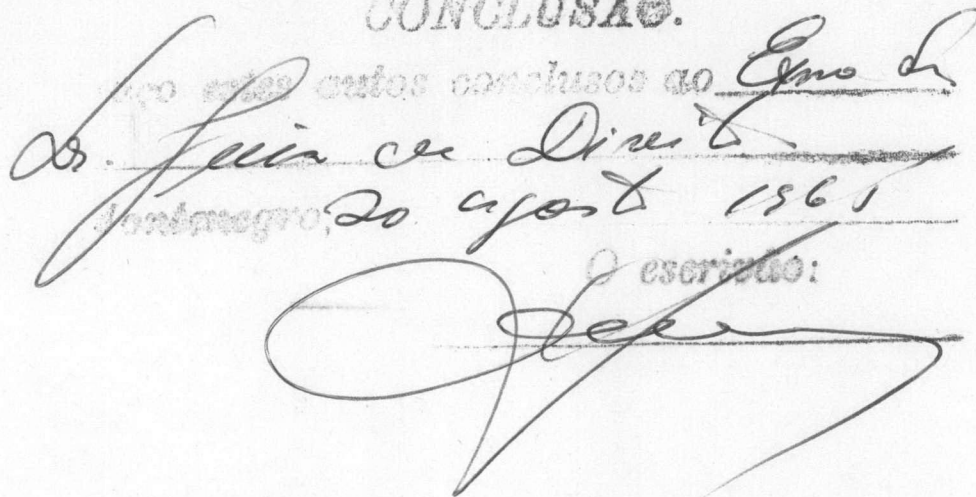 CONCLUSÃO.
aço estes autos conclusos ao Exmo Sr
Dr. Juiz de Direito
Montenegro, 20 agosto 1961
O escrivão: